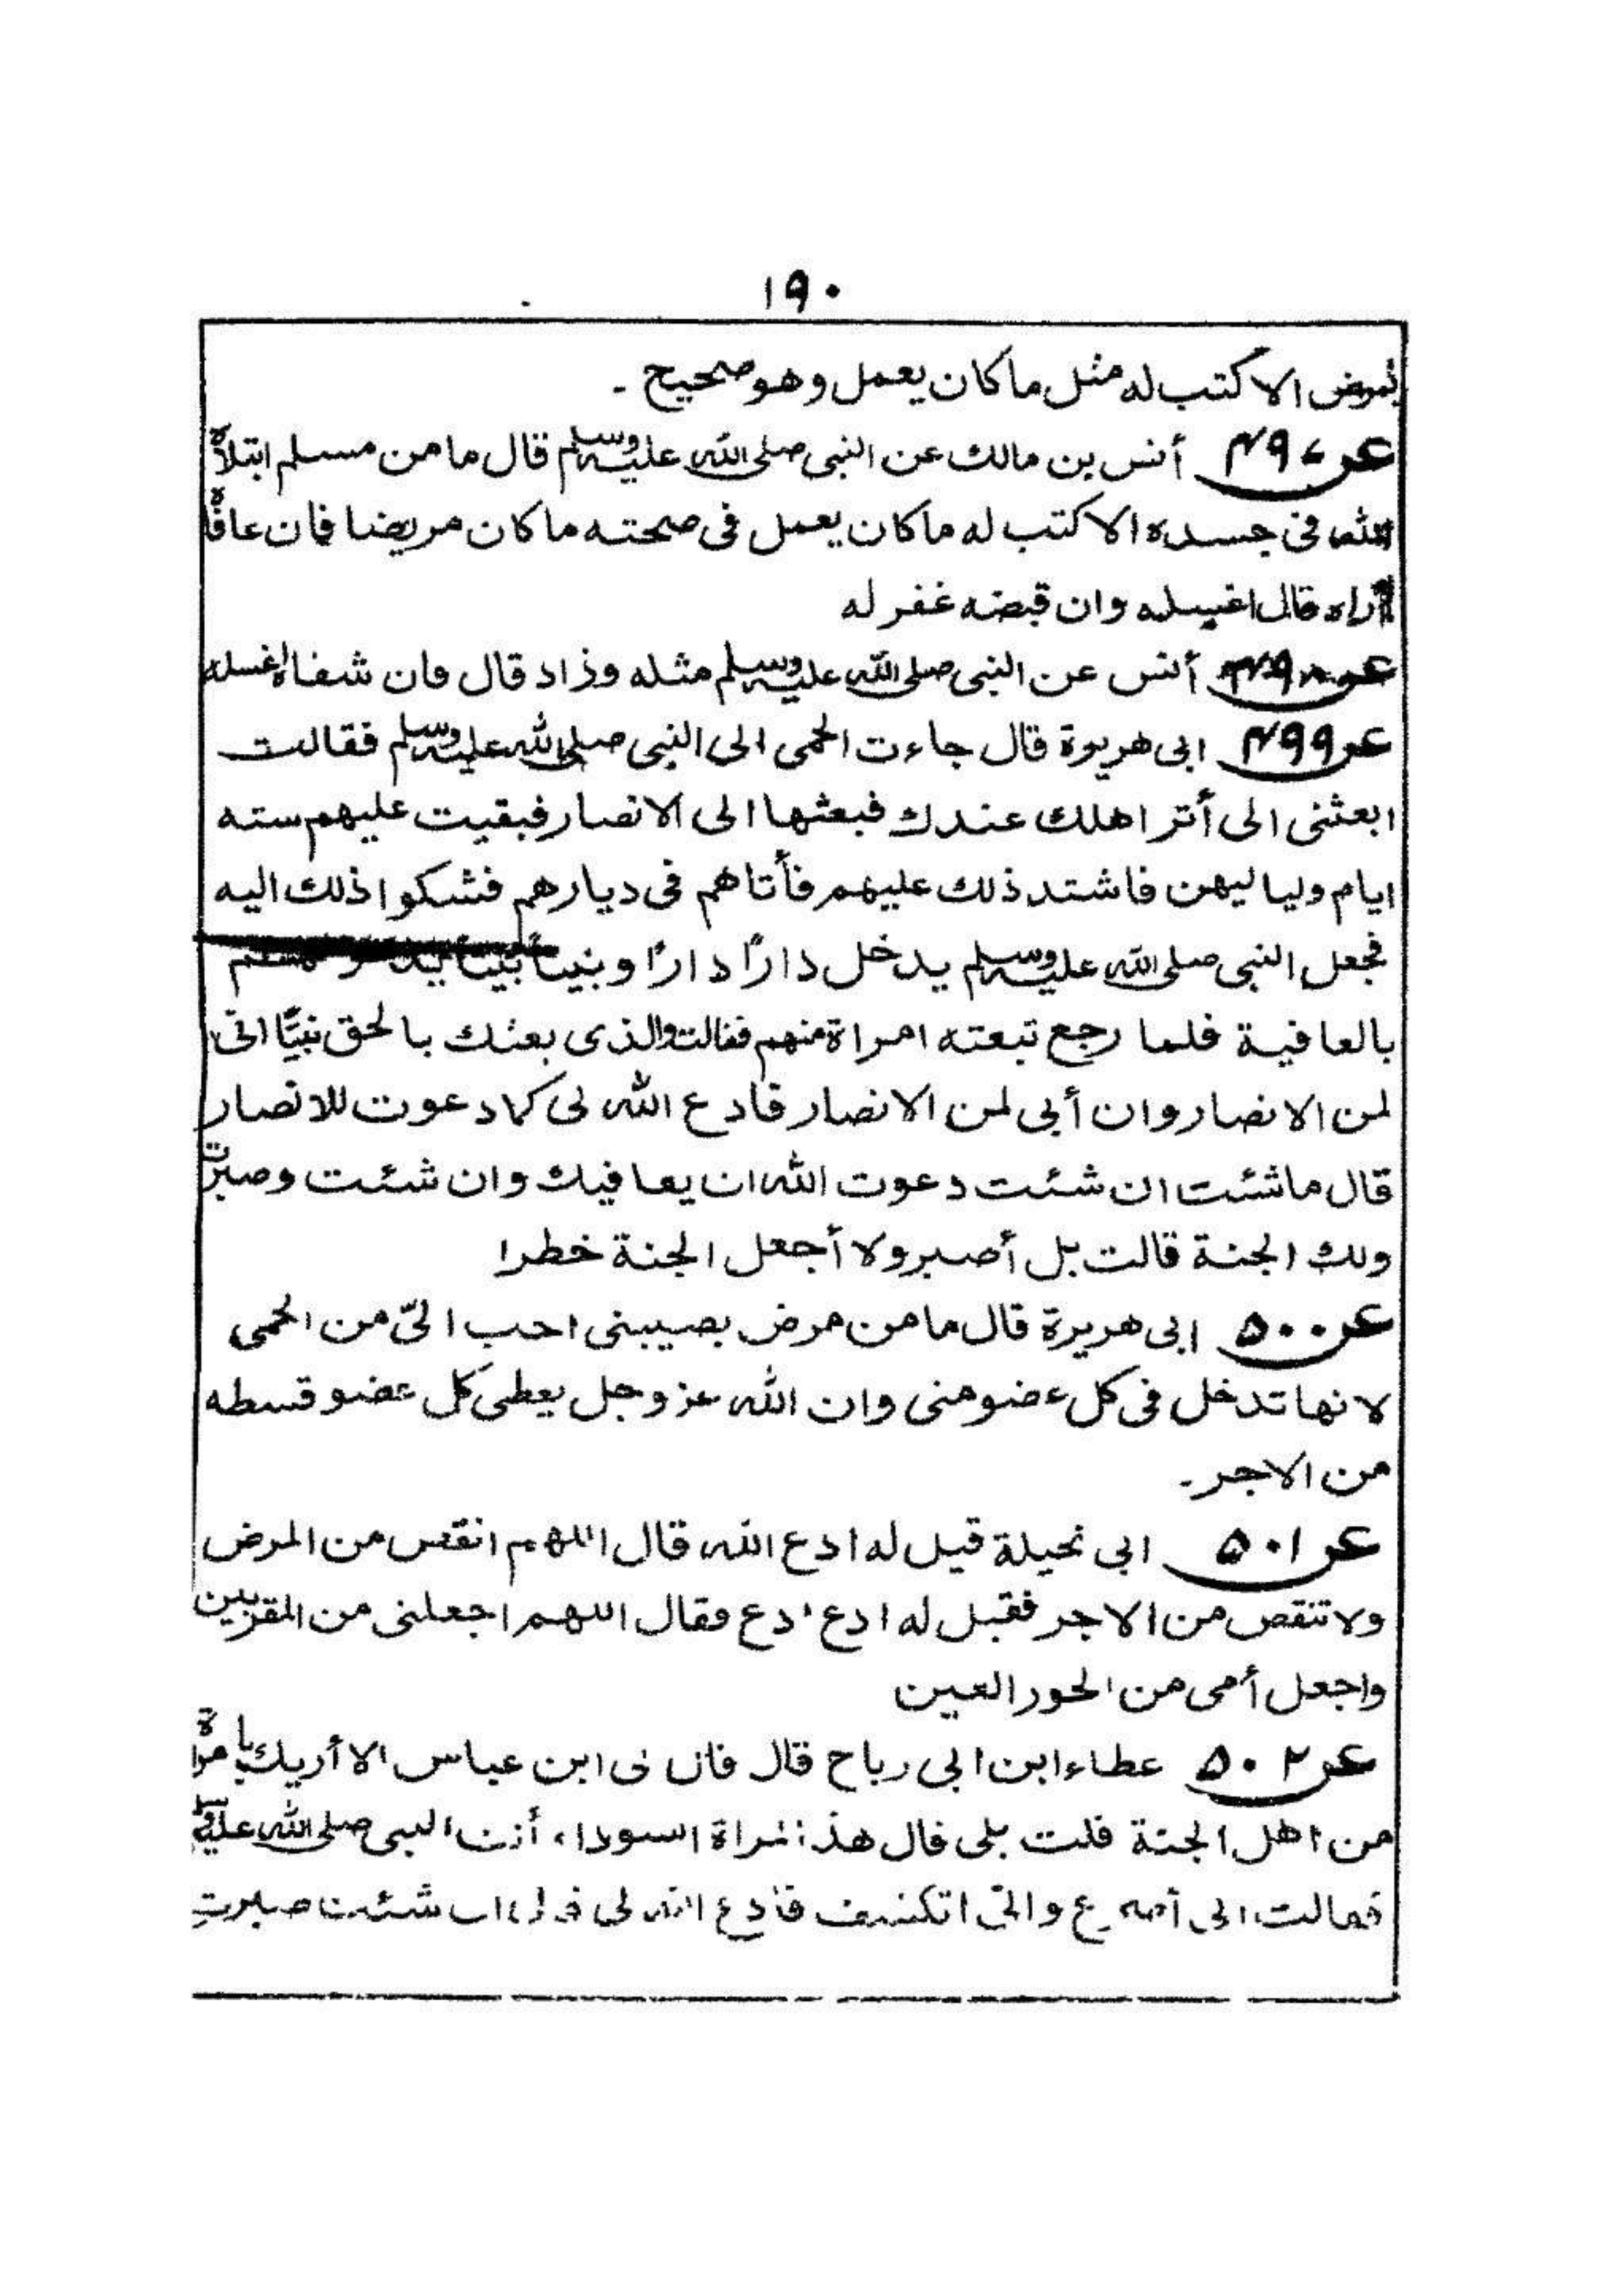 ١٩٠
يمرض الا كتب له مثل ما كان يعمل وهو صحيح ـ
عن ٤٩٧ أنس بن مالك عن النبى صلى الله عليه وسلم قال ما من مسلم ابتلاه
الله فى جسده الا كتب له ما كان يعمل فى صحته ما كان مريضا فان عافاه
قال اغسله وان قبضه غفر له
عن ٤٩٨ أنس عن النبى صلى الله عليه وسلم مثله وزاد قال فان شفاه اغسله
عن ٤٩٩ ابى هريرة قال جاءت الحمى الى النبى صلى الله عليه وسلم فقالت
ابعثنى الى أثر اهلك عندك فبعثها الى الانصار فبقيت عليهم سته
ايام ولياليهن فاشتد ذلك عليهم فأتاهم فى ديارهم فشكوا ذلك اليه
فجعل النبى صلى الله عليه وسلم يدخل دارًا دارًا وبيتاً بيتاً
بالعافية فلما رجع تبعته امراة منهم فقالت والذى بعثك بالحق نبيًّا انى
لمن الانصار وان أبى لمن الانصار فادع الله لى كما دعوت للانصار
قال ما شئت ان شئت دعوت الله ان يعافيك وان شئت وصبرت
ولك الجنة قالت بل أصبر ولا أجعل الجنة خطرا
عن ٥٠٠ ابى هريرة قال ما من مرض يصيبنى احب الىّ من الحمى
لانها تدخل فى كل عضو منى وان الله عز وجل يعطى كل عضو قسطه
من الاجر ـ
عن ٥٠١ ابى نحيلة قيل له ادع الله قال اللهم انقص من المرض
ولا تنقص من الاجر فقيل له ادع ادع فقال اللهم اجعلنى من المقربين
واجعل أمى من الحور العين
عن ٥٠٢ عطاء ابن ابى رباح قال قال لى ابن عباس الا أريك يا مرأة
من اهل الجنة قلت بلى قال هذه المراة السوداء أتت النبى صلى الله عليه وسلم
فقالت انى أصرع وانى اتكشف فادع الله لى قال ان شئت صبرت